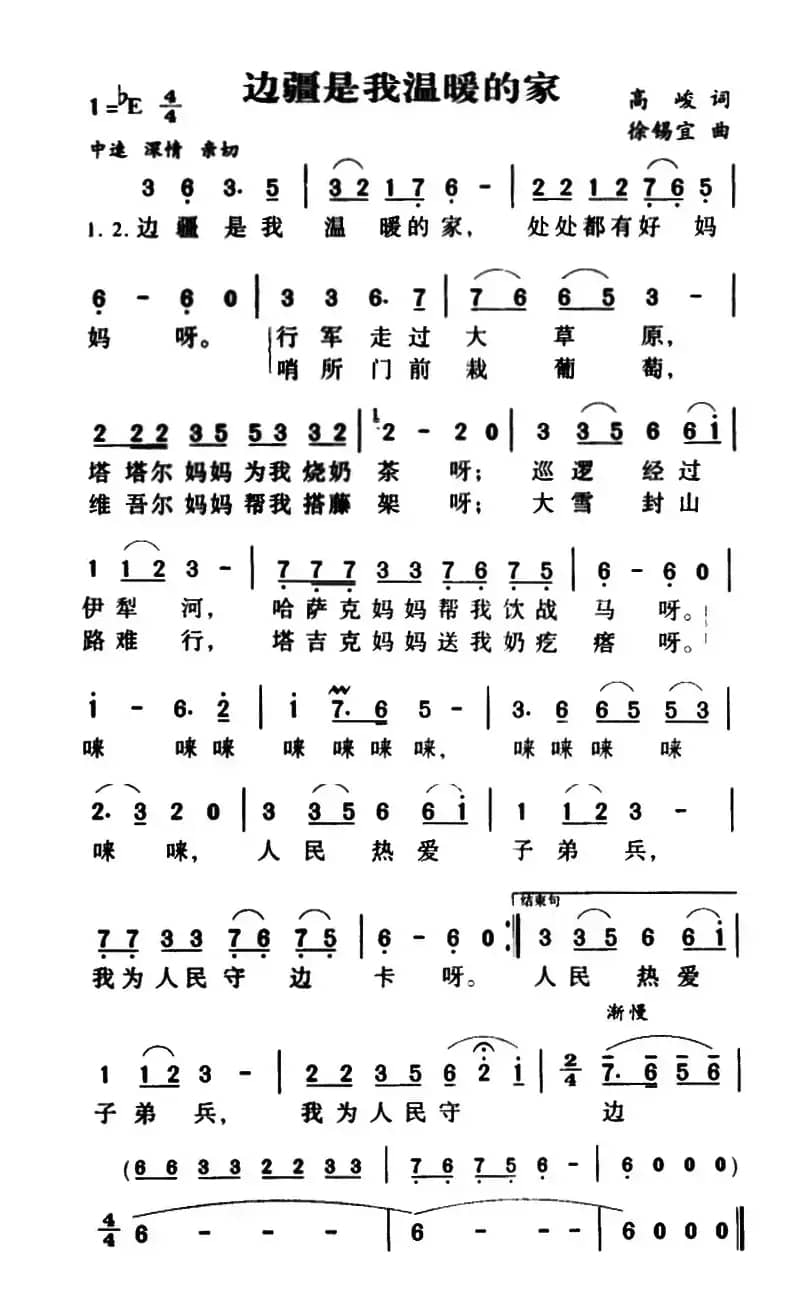 边疆是我温暖的家
1=♭E 4/4
高峻 词
徐锡宜 曲
中速 深情 亲切
3 6 3· 5 | 3 2 1 7 6 - | 2 2 1 2 7 6 5
1.2.边疆是我 温暖的家, 处处都有好妈
6 - 6 0 | 3 3 6· 7 | 7 6 6 5 3 -
妈呀。 行军走过大草原,
哨所门前栽葡萄,
2 2 2 3 5 5 3 3 2 | 1 2 - 2 0 | 3 3 5 6 6 i
塔塔尔妈妈为我烧奶茶呀; 巡逻经过
维吾尔妈妈帮我搭藤架呀; 大雪封山
1 1 2 3 - | 7 7 7 3 3 7 6 7 5 | 6 - 6 0
伊犁河, 哈萨克妈妈帮我饮战马呀。
路难行, 塔吉克妈妈送我奶疙瘩呀。
i - 6· 2 | i 7· 6 5 - | 3· 6 6 5 5 3
唻 唻唻 唻唻唻唻, 唻唻唻唻
2· 3 2 0 | 3 3 5 6 6 i | 1 1 2 3 -
唻唻, 人民热爱子弟兵,
结束句
7 7 3 3 7 6 7 5 | 6 - 6 0 :| 3 3 5 6 6 i
我为人民守边卡呀。人民热爱
渐慢
1 1 2 3 - | 2 2 3 5 6 2 i | 2/4 7· 6 5 6
子弟兵, 我为人民守 边
(6 6 3 3 2 2 3 3 | 7 6 7 5 6 - | 6 0 0 0)
4/4 6 - - - | 6 - - - | 6 0 0 0 ‖